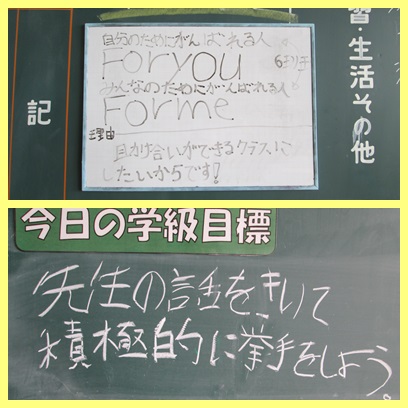 習・生活その他
自分のためにがんばれる人
For you
みんなのためにがんばれる人
For me
理由
助け合いができるクラスに
したいからです!
記
今日の学級目標
先生の話をきいて
積極的に挙手をしよう。